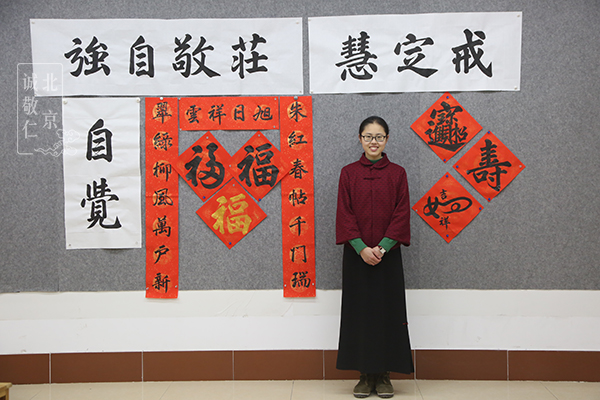 戒定慧
莊敬自強
自覺
旭日祥雲
朱紅春帖千門瑞
翠綠柳風萬戶新
福
福
福
招財進寶
壽
吉祥如意
北京
誠敬仁